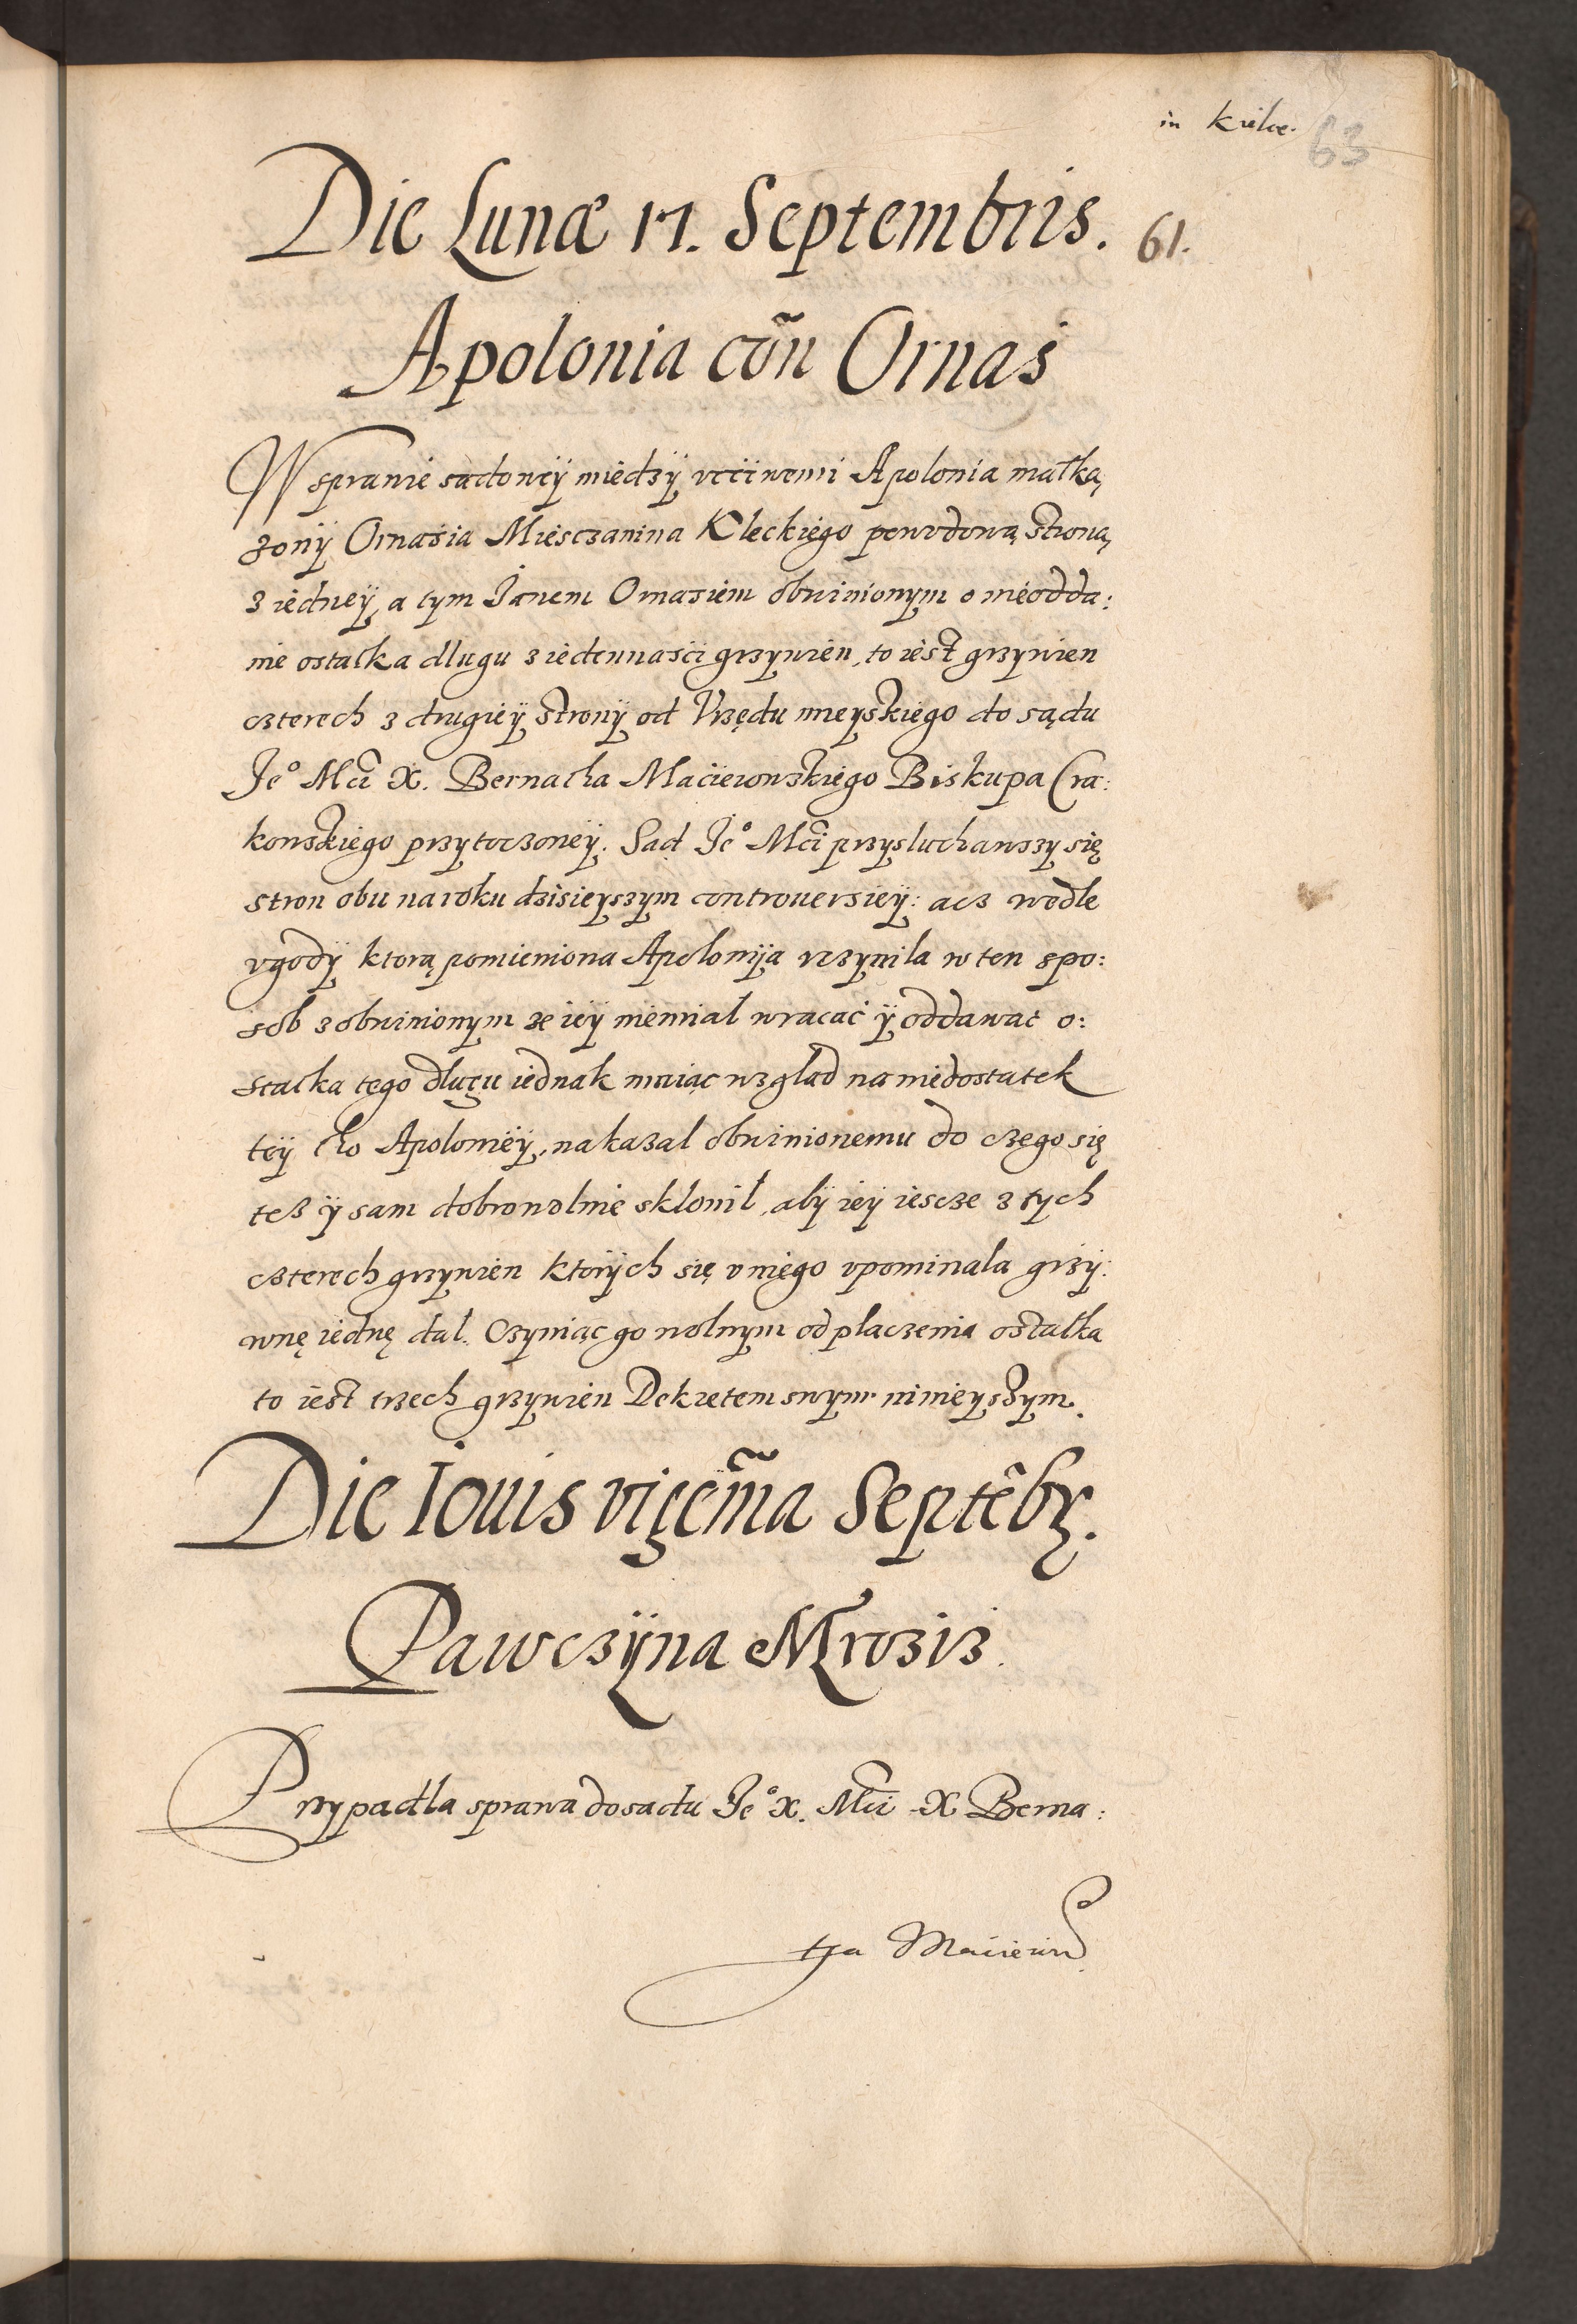 in Kielce.
63
Die Lunæ 17. Septembris. 61.
Apolonia cõn Ornas
W sprawie sądowey między vcciwemi Apolonią matką
żony Ornasia Miesczanina Kleckiego powodową stroną
z iedney, a tym Janem Ornasiem obwinionym o nieodda:
nie ostatka dlugu z iedennaści grzywien, to iest grzywien
czterech z drugiey strony od Vrzędu mieyskiego do sądu
Je° Mci X. Bernatha Macieiowskiego Biskupa Cra:
kowskiego przytoczoney. Sąd Je° Mci przysluchawszy się
stron obu na roku dzisieyszym controuersiey: acz wedle
vgody ktorą pomieniona Apolonija vczynila w ten spo:
sob z obwinionym ze iey niemial wracać y oddawać o:
statka tego dlugu iednak maiąc wzgląd na niedostatek
tey tho Apoloniey, nakazal obwinionemu do czego się
też y sam dobrowolnie sklonil, aby iey iescze z tych
czterech grzywien ktorych się v niego vpominala grzy:
wnę iednę dal. Czyniąc go wolnym od placzenia ostatka
to iest trzech grzywien Dekretem swym ninieyszym.
Die Iouis vigem̃a Septêbr.
Pawczyna Mroziz.
Przypadla sprawa do sądu Je° X. Mci X Berna:
tha Macieiow